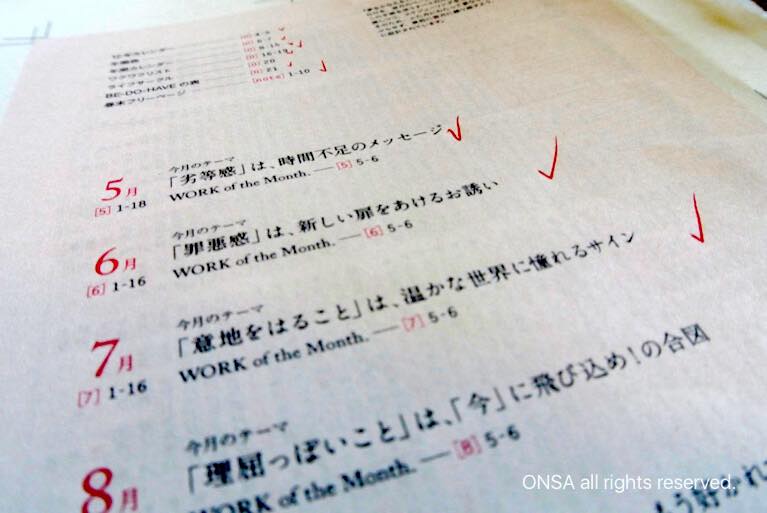 12年カレンダー [0] 4-5
年間カレンダー [0] 8-15
ワクワクリスト [0] 16-19
ライフサークル [0] 20
BE-DO-HAVEの表 [0] 21
巻末フリーページ [note] 1-10
5月
[5] 1-18
今月のテーマ
「劣等感」は、時間不足のメッセージ
WORK of the Month. — [5] 5-6
6月
[6] 1-16
今月のテーマ
「罪悪感」は、新しい扉をあけるお誘い
WORK of the Month. — [6] 5-6
7月
[7] 1-16
今月のテーマ
「意地をはること」は、温かな世界に憧れるサイン
WORK of the Month. — [7] 5-6
8月
今月のテーマ
「理屈っぽいこと」は、「今」に飛び込め!の合図
WORK of the Month. — [8] 5-6
もう好かれ
ONSA all rights reserved.